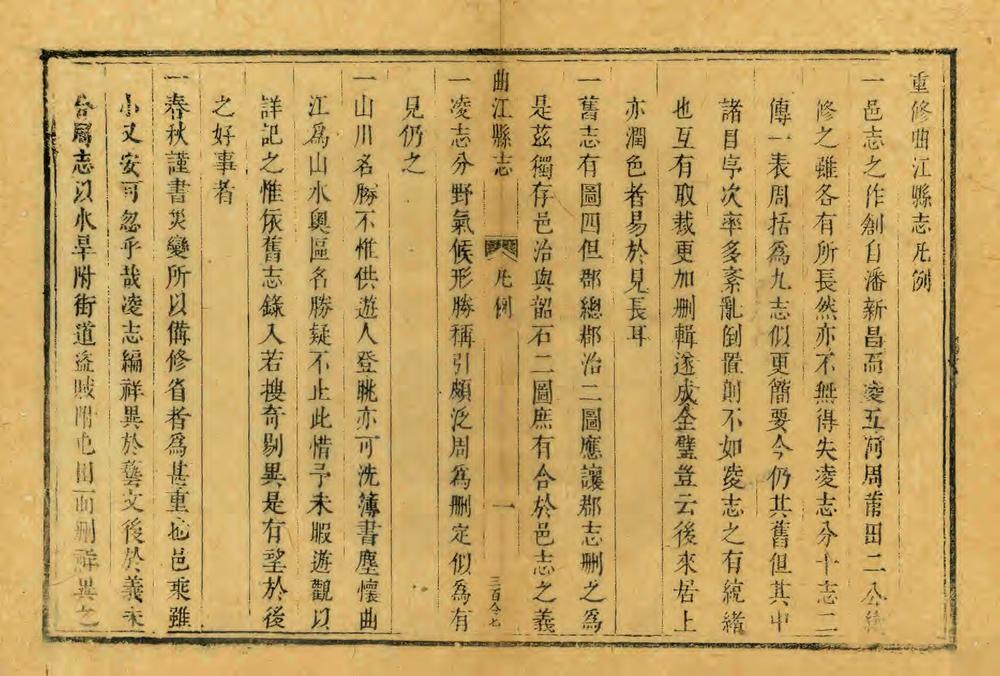 重修曲江縣志凡例
一邑志之作創自潘新昌而凌五河周莆田二公繼
修之雖各有所長然亦不無得失凌志分十志二
傳一表周括為九志似更簡要今仍其舊但其中
諸目序次率多紊亂倒置則不如凌志之有統緒
也互有取裁更加刪輯遂成全璧豈云後來居上
亦潤色者易於見長耳
一舊志有圖四但郡總郡治二圖應讓郡志刪之為
是茲獨存邑治與韶石二圖庶有合於邑志之義
曲江縣志 凡例 一
一凌志分野氣候形勝稱引頗泛周為刪定似為有
見仍之
一山川名勝不惟供遊人登眺亦可洗簿書塵懷曲
江為山水奧區名勝疑不止此惜予未暇遊觀以
詳記之惟依舊志錄入若搜奇剔異是有望於後
之好事者
一春秋謹書災變所以備修省者為甚重也邑乘雖
小又安可忽乎哉凌志編祥異於藝文後於義未
合周志以水旱附街道盜賊附屯田而刪祥異之